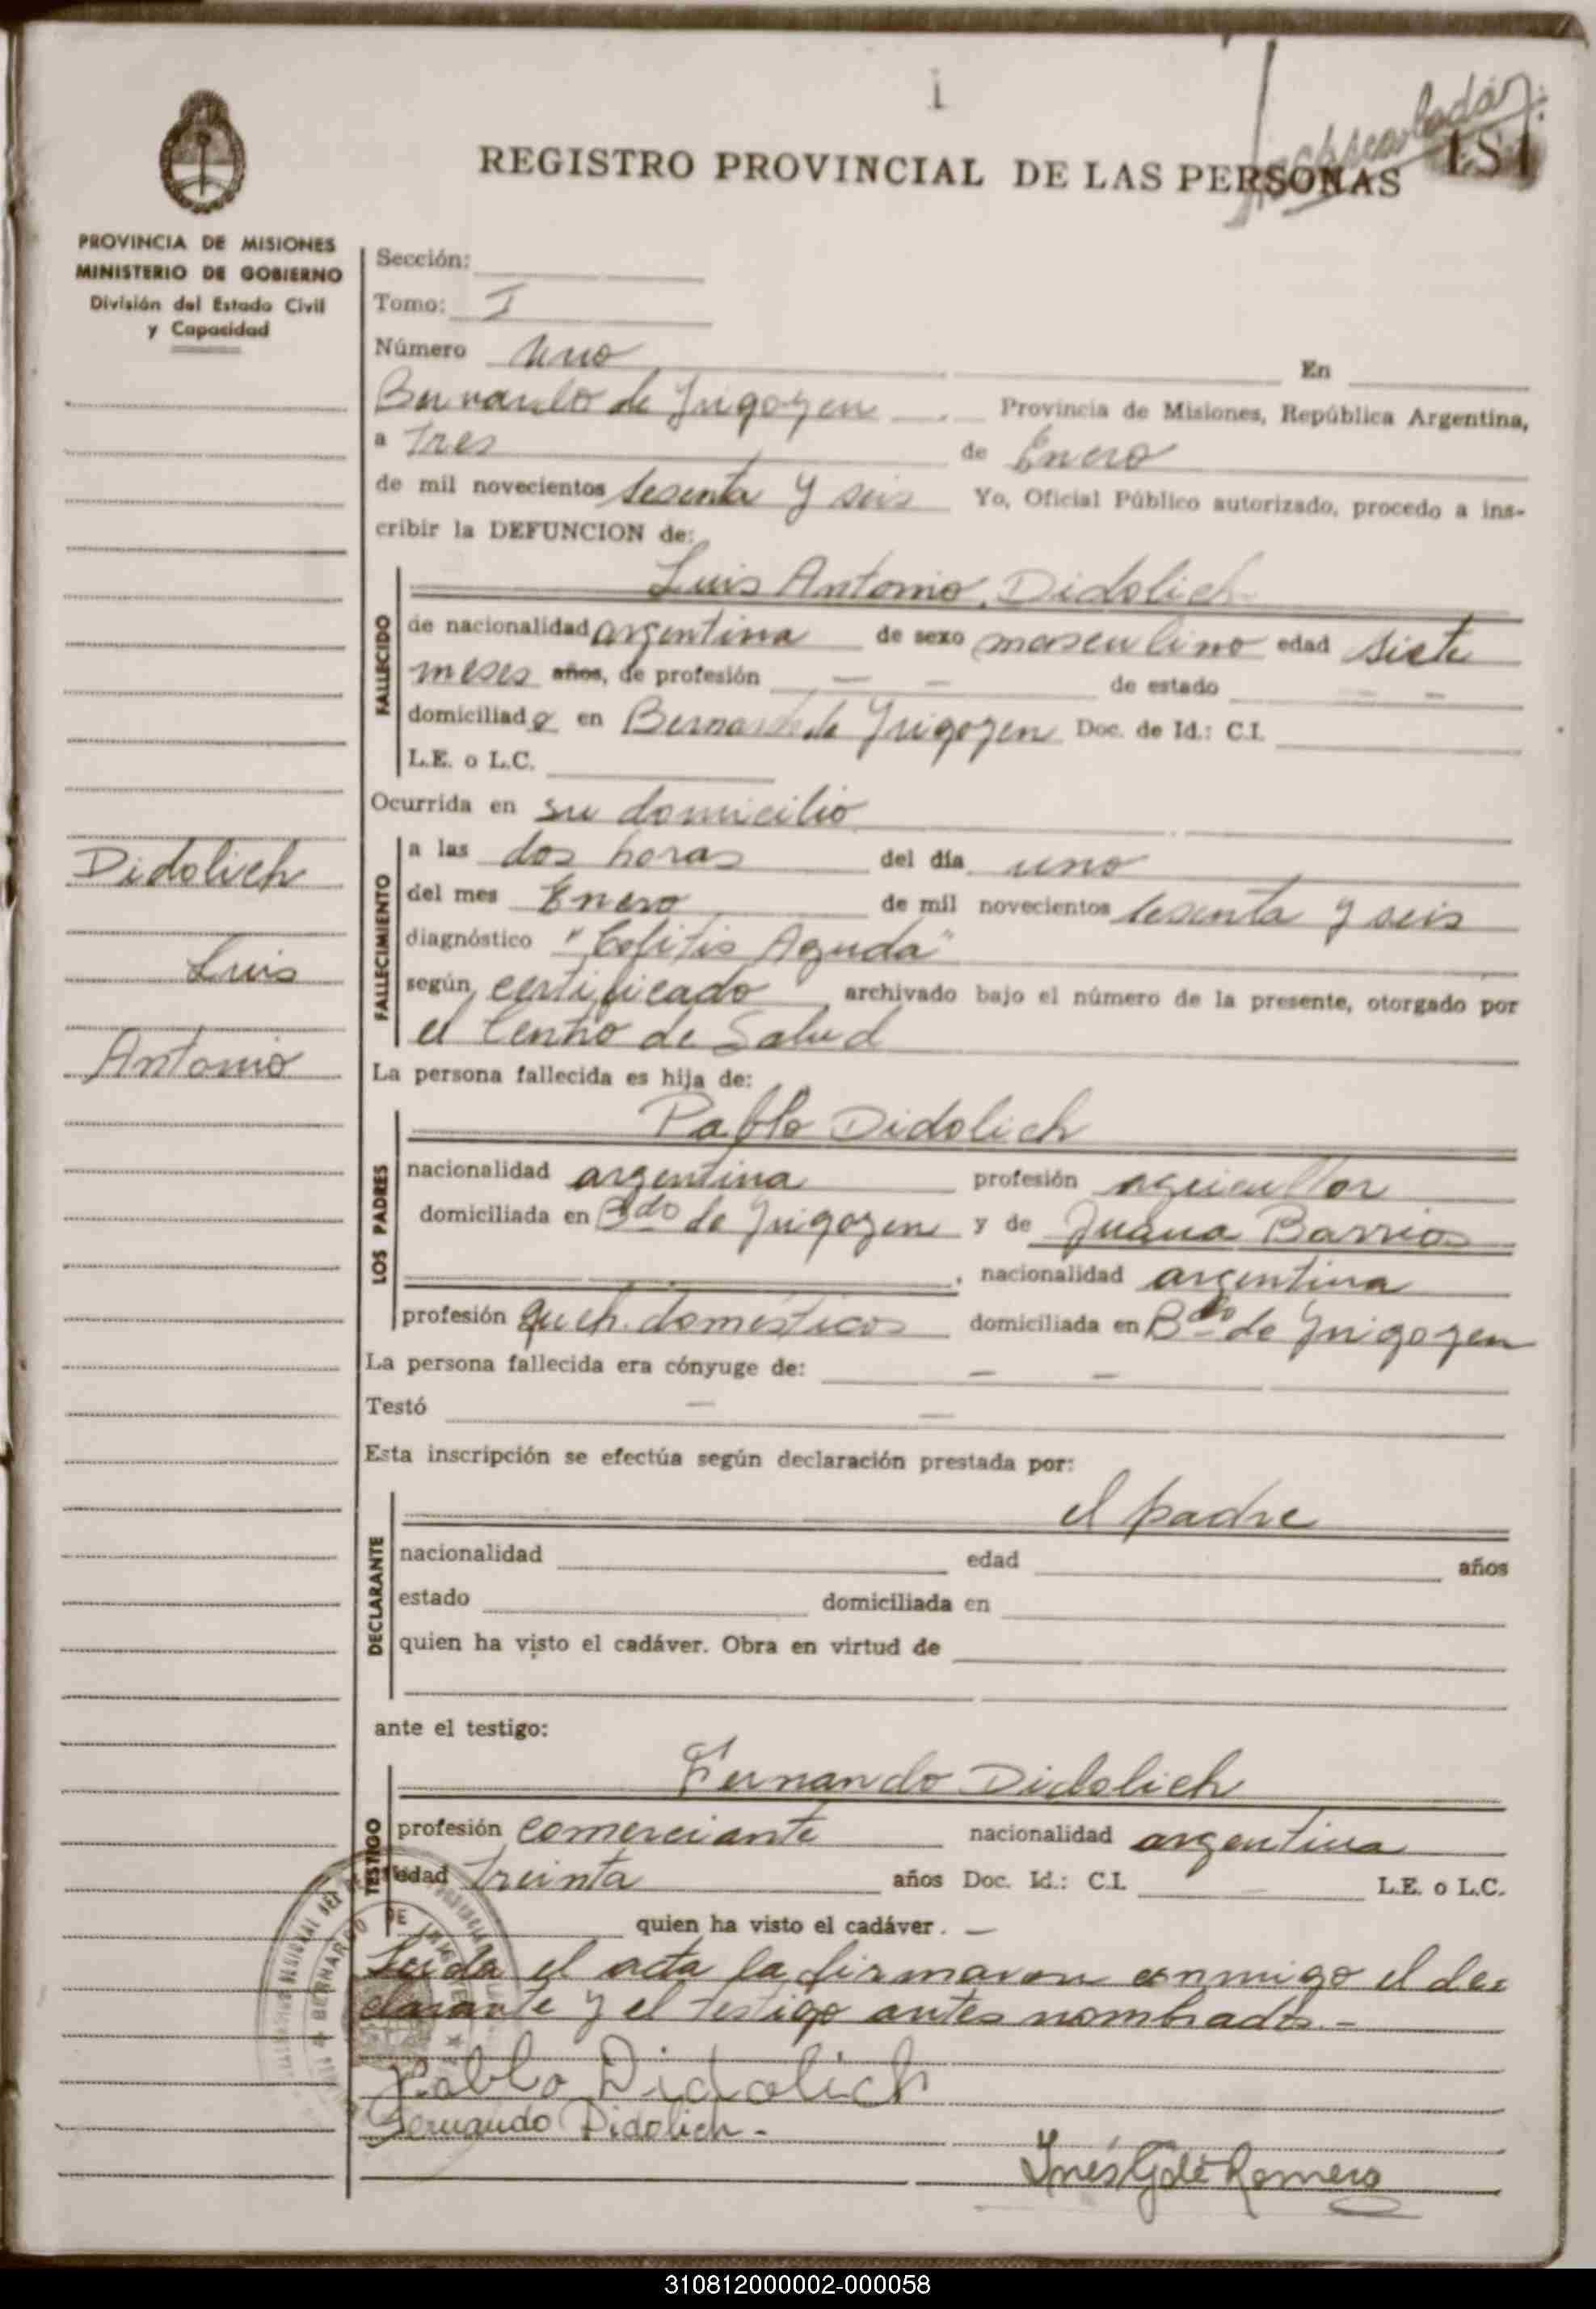 1
REGISTRO PROVINCIAL DE LAS PERSONAS
181
PROVINCIA DE MISIONES
MINISTERIO DE GOBIERNO
División del Estado Civil
y Capacidad
Didolich
Luis
Antonio
Sección:
Tomo: I
Número uno En
Bernardo de Irigoyen Provincia de Misiones, República Argentina,
a Tres de Enero
de mil novecientos sesenta y seis Yo, Oficial Público autorizado, procedo a ins-
cribir la DEFUNCION de:
Luis Antonio Didolich
FALLECIDO
de nacionalidad argentina de sexo masculino edad siete
meses años, de profesión — — de estado — —
domiciliado en Bernardo de Irigoyen Doc. de Id.: C.I.
L.E. o L.C.
Ocurrida en su domicilio
FALLECIMIENTO
a las dos horas del día uno
del mes Enero de mil novecientos sesenta y seis
diagnóstico "Colitis Aguda"
según certificado archivado bajo el número de la presente, otorgado por
el Centro de Salud
La persona fallecida es hija de:
Pablo Didolich
LOS PADRES
nacionalidad argentina profesión agricultor
domiciliada en Bdo de Irigoyen y de Juana Barrios
, nacionalidad argentina
profesión queh. domésticos domiciliada en Bdo de Irigoyen
La persona fallecida era cónyuge de: — —
Testó — —
Esta inscripción se efectúa según declaración prestada por:
el padre
DECLARANTE
nacionalidad edad años
estado domiciliada en
quien ha visto el cadáver. Obra en virtud de
ante el testigo:
Fernando Didolich
TESTIGO
profesión comerciante nacionalidad argentina
edad treinta años Doc. Id.: C.I. — L.E. o L.C.
quien ha visto el cadáver. —
Leida el acta la firmaron conmigo el de=
clarante y el testigo antes nombrados.-
Pablo Didolich
Fernando Didolich.-
Inés Romero
310812000002-000058